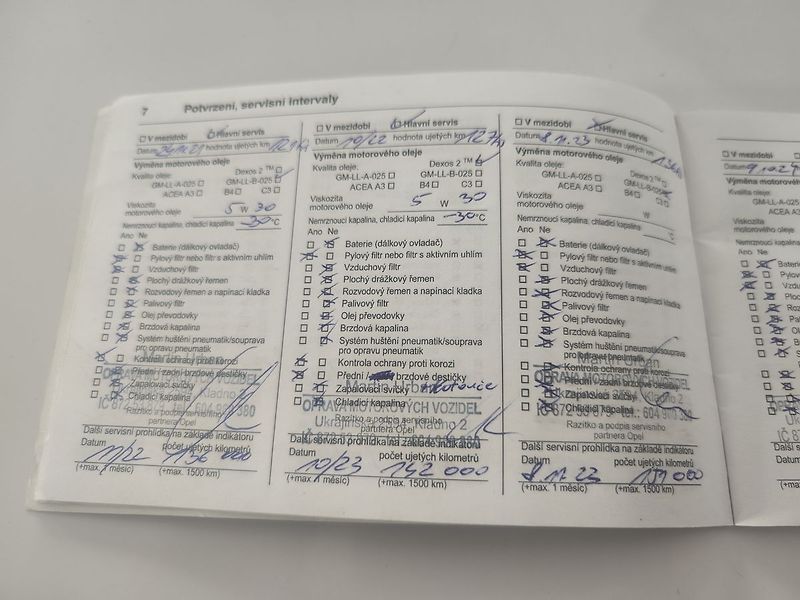 7 Potvrzení, servisní intervaly
V mezidobí Hlavní servis
Datum hodnota ujetých km
Výměna motorového oleje
Kvalita oleje: Dexos 2 TM
GM-LL-A-025 GM-LL-B-025
ACEA A3 B4 C3
Viskozita
motorového oleje 5 W 30
Nemrznoucí kapalina, chladicí kapalina -30°C
Ano Ne
Baterie (dálkový ovladač)
Pylový filtr nebo filtr s aktivním uhlím
Vzduchový filtr
Plochý drážkový řemen
Rozvodový řemen a napínací kladka
Palivový filtr
Olej převodovky
Brzdová kapalina
Systém huštění pneumatik/souprava
pro opravu pneumatik
Kontrola ochrany proti korozi
Přední / zadní brzdové destičky
Zapalovací svíčky
Chladicí kapalina
Kladno 2
Razítko a podpis servisního
partnera Opel
Další servisní prohlídka na základě indikátoru
Datum počet ujetých kilometrů
11/22 136 000
(+max. 1 měsíc) (+max. 1500 km)
V mezidobí Hlavní servis
Datum 10/22 hodnota ujetých km
Výměna motorového oleje
Kvalita oleje: Dexos 2 TM
GM-LL-A-025 GM-LL-B-025
ACEA A3 B4 C3
Viskozita
motorového oleje 5 W 30
Nemrznoucí kapalina, chladicí kapalina -30°C
Ano Ne
Baterie (dálkový ovladač)
Pylový filtr nebo filtr s aktivním uhlím
Vzduchový filtr
Plochý drážkový řemen
Rozvodový řemen a napínací kladka
Palivový filtr
Olej převodovky
Brzdová kapalina
Systém huštění pneumatik/souprava
pro opravu pneumatik
Kontrola ochrany proti korozi
Přední brzdové destičky
Zapalovací svíčky
Chladicí kapalina
Martin Urban
OPRAVA MOTOROVÝCH VOZIDEL
Kladno 2
Razítko a podpis servisního
partnera Opel
Další servisní prohlídka na základě indikátoru
Datum počet ujetých kilometrů
10/23 142 000
(+max. 1 měsíc) (+max. 1500 km)
V mezidobí Hlavní servis
Datum 8.11.23 hodnota ujetých km
Výměna motorového oleje
Kvalita oleje: Dexos 2 TM
GM-LL-A-025 GM-LL-B-025
ACEA A3 B4 C3
Viskozita
motorového oleje W
Nemrznoucí kapalina, chladicí kapalina °C
Ano Ne
Baterie (dálkový ovladač)
Pylový filtr nebo filtr s aktivním uhlím
Vzduchový filtr
Plochý drážkový řemen
Rozvodový řemen a napínací kladka
Palivový filtr
Olej převodovky
Brzdová kapalina
Systém huštění pneumatik/souprava
pro opravu pneumatik
Martin Urban
Kontrola ochrany proti korozi
Přední / zadní brzdové destičky
Zapalovací svíčky
Chladicí kapalina
Razítko a podpis servisního
partnera Opel
Další servisní prohlídka na základě indikátoru
Datum počet ujetých kilometrů
8.11.23
(+max. 1 měsíc) (+max. 1500 km)
V mezidobí
Datum
Výměna motorového
Kvalita oleje:
GM-LL-A
ACEA
Viskozita
motorového oleje
Nemrznoucí kapalina
Ano Ne
Baterie
Pylový
Plochý
Palivový
Další
Datum
(+max.